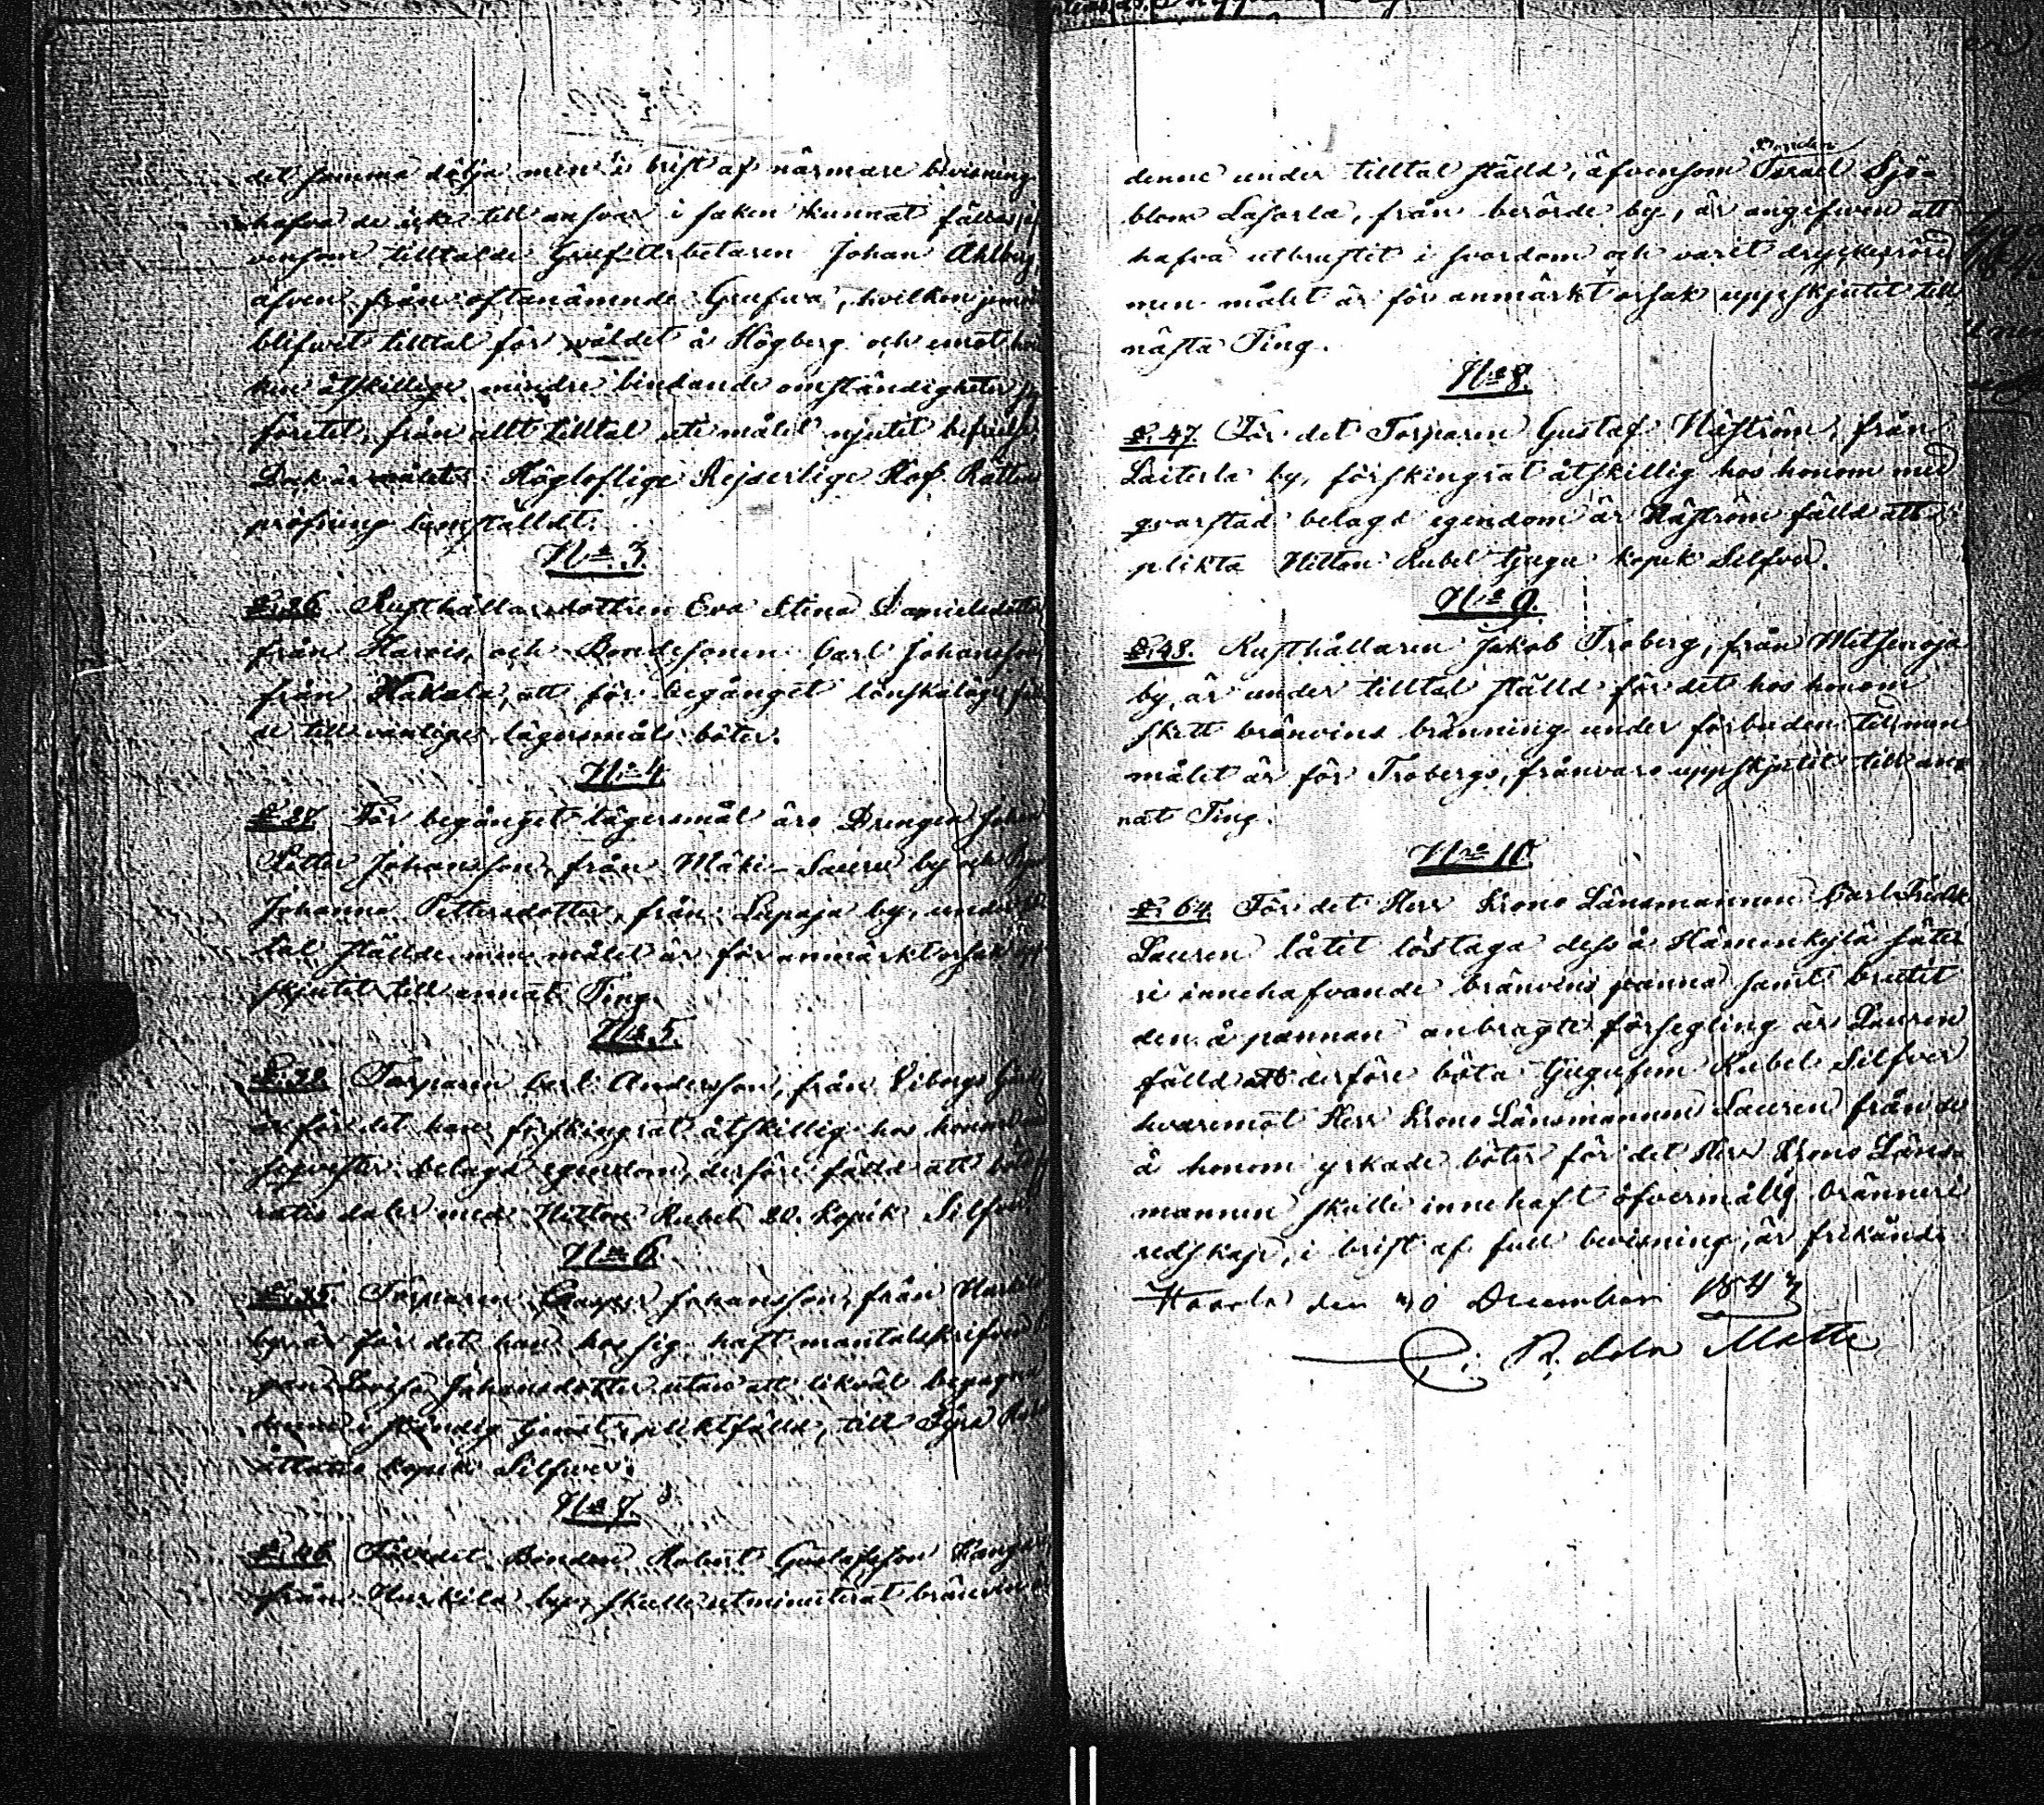 det samma dölja men i brist af närmare bevisning
hafva de icke till ansvar i saken kunnat fällas,
vensom tilltalde Gruf Arbetaren Johan Ahlberg,
äfven från oftanämnde Grufva, hvilken
blifwit tilltal för våldet å Högberg och emot
ken åtskillige mindre bindande omständigheter
företet, från allt tilltal uti målet njutit befrielse,
Dock är målet Högloflige Kejserlige Hof Rättens
pröfning hemställdt.
N:o 3.
§. 26. Rusthållaredottren Eva Stina Danielsdotter
från Haveis, och Bondesonen Carl Johansson
från Hakala, att för begånget lönskaläge,
de till vanliga lägersmåls böter.
N:o 4
§ 27. För begånget lägersmål äro Drengen Johan
Petter Johansson från Mäki-Sauru by och
Johanna Pettersdotter, från Lepaja by, under
tal ställde, men målet är för anmärkt orsak upp
skjutit till annat Ting.
N:o 5.
Torparen Carl Andersson, från Viborgs
är för det han förskingrat åtskillig hos honom
seqvester belagd egendom, derföre fälld att böta
daler med Nitton Rubel 20. kopek Silfver.
N:o 6.
Torparen Casper Johansson, från
by, är för det han hos sig haft mantalskrifven
Lovisa Johansdotter utan att likväl begagna
denne i ständig tjenst, pliktfälld, till Fyra Rubel
åttatio kopek Silfver.
N:o 7.
§. 46. För det Bonden Robert Gustafsson
från Hurkila by, skulle utminuterat bränvin
denne under tilltal ställd, äfvensom Bonden Israel Sjö-
blom Lasarla, från berörde by, är angifwen att
hafva utbrustit i svordom och varit dryckesrörd
men målet är för anmärkt orsak uppskjutit till
nästa Ting.
N:o 8.
§. 47. För det Torparen Gustaf Näström, från
Laiterla by, förskingrat åtskillig hos honom med
qvarstad belagd egendom är Näström fälld att
plikta Nitton Rubel tjugu kopek Silfver.
N:o 9.
§. 48. Rusthållaren Jakob Froberg, från Metsenoja
by, är under tilltal ställd för det hos honom
skett bränvins bränning under förbuden tid, men
målet är för Frobergs, frånvaro uppskjutit till an-
nat Ting.
N:o 10.
§. 64. För det Herr Krono Länsmannen Carl Fredrik
Lauren låtit löstaga dess å Hämenkylä säte
ri innehafvande bränvins panna samt brutit
den å pannan anbragte försegling är Lauren
fälld att derföre böta Tjugufem Rubel Silfver
hvaremot Herr Krono Länsmannen Lauren från de
å honom yrkade böter för det Herr Krono Läns-
mannen skulle innehaft öfvermålig bränneri
redskap, i brist af full bevisning, är frikänd.
den 30 December 1843